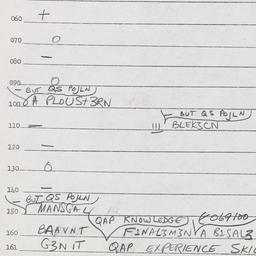 060 +
070 O
080 —
090 O
BUT QS POJLN
100 A PLOUS+3RN
BUT QS POJLN
110 — BLEK3CN
120 —
130 O
140 —
BUT QS POJLN
150 MANSGAL
QAP KNOWLEDGE
160 BAAVNT F1NAL3M3N A B1SAL3
161 G3N1T QAP EXPERIENCE SKI